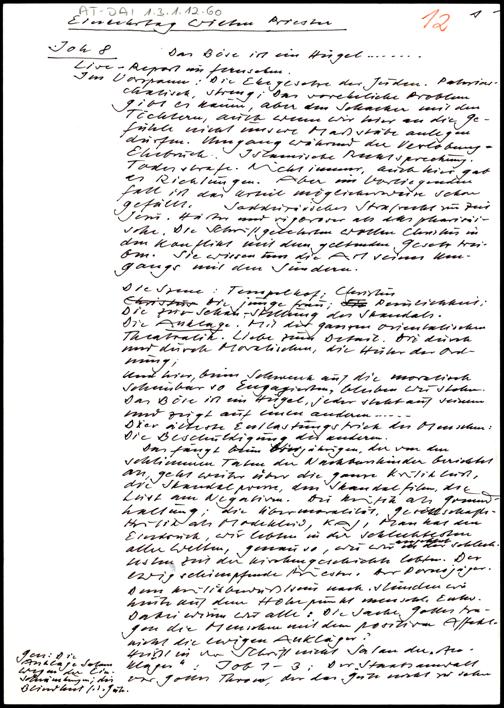 AT-DAI 1.3.1.12.60
12
Einkehrtag Wiener Priester
Joh 8 Das Böse ist ein Hügel.......
Live-Report im Fernsehn.
Im Vorspann: Die Ehegesetze der Juden. Patriar-
chalisch, streng; Das voreheliche Problem
gibt es kaum, aber den Schacher mit den
Töchtern, auch wenn wir hier an die Ge-
fühle nicht unsere Maßstäbe anlegen
dürfen. Umgang während der Verlobung =
Ehebruch. Islamische Rechtsprechung.
Todesstrafe. Nicht immer, auch hier gab
es Richtungen. Aber im vorliegenden
Fall ist das Urteil möglicherweise schon
gefällt. Sadduzäisches Strafrecht zur Zeit
Jesu. Härter und rigoroser als das pharisäi-
sche. Die Schriftgelehrten wollen Christus in
den Konflikt mit dem geltenden Gesetz trei-
ben. Sie wissen um die Art seines Um-
gangs mit den Sündern.
Die Szene: Tempelhof; Christus
Die junge Frau;
Die zur Schau-Stellung des Skandals.
Die Anklage. Mit der ganzen orientalischen
Theatralik. Liebe zum Detail. Die durch
und durch Moralischen, die Hüter der Ord-
nung;
und hier, beim Schwenk auf die moralisch
scheinbar so Engagierten, bleiben wir stehen.
Das Böse ist ein Hügel, jeder steht auf seinem
und zeigt auf einen anderen......
Der älteste Entlastungstrick des Menschen:
Die Beschuldigung des anderen.
Das fängt beim jährigen, der von den
schlimmen Taten der Nachbarskinder berichtet
an, geht weiter über die ganze
die Skandalpresse, den Skandalfilm, die
Lust am Negativen. Die Kritik als Grund-
haltung; die Übermoralität, Gesellschafts-
kritik als Modekleid, KAJ, Man hat den
Eindruck, wir lebten in der schlechtesten
aller Welten, genau so, wie wir in der schlech-
testen Zeit der Kirchengeschichte lebten. Der
ewig schimpfende Priester. Der Dornojäger.
Dem nach stünden wir
heute auf dem Höhepunkt mensch. Entw.
Dabei wissen wir alle: Die Sache Gottes tra-
gen die Menschen mit den positiven Affekten
nicht die ewigen Ankläger!
Heißt in der Schrift nicht Satan der "An-
kläger": Job 1-3; Der Staatsanwalt
vor Gottes Thron, der das Gute nicht zu sehen
Gen: Die
Anklage Adams
wegen der